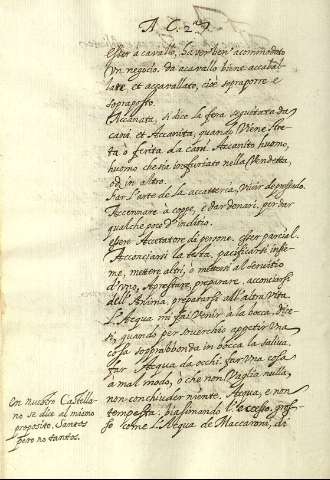 A. C. 2.
Esser a cavallo, haver ben' accommodato
un negocio. da acavallo viene accabal-
lare et accavallato, cioè sopraporre e
sopraposto.
Accanata, si dice la fera seguitata da
cani et Accanita, quando viene stre-
ta ò ferita da cani. Accanito huomo,
huomo che sia infuriato nella vendetta,
od in altro.
Far l'arte de la accatterca, viver de prestado.
Accennare a coppe, e dar denari, per dar
qualche poco d'inditio.
essere Accetator di persone. esser parcial.
Acconciarsi la testa, pacificarsi insie-
me, mettere altri, ò mettersi al servitio
d'uno, Aprestare, preparare. acconciarsi
dell'Anima, prepararsi all'altra vita.
L'Acqua mi fai venir à la bocca. dice-
si, quando per soverchio appetir una
cosa soprabbonda in bocca la saliva.
far Acqua da ochi. far una cosa
a mal modo, ò che non vaglia nulla
non conchiuder niente. Acqua, e non
tempesta: biasimando l'eccesso gros-
so come l'Acqua de Maccaroni, di
En nuestro Castella-
no se dize al mismo
proposito. Santos
pero no tantos.